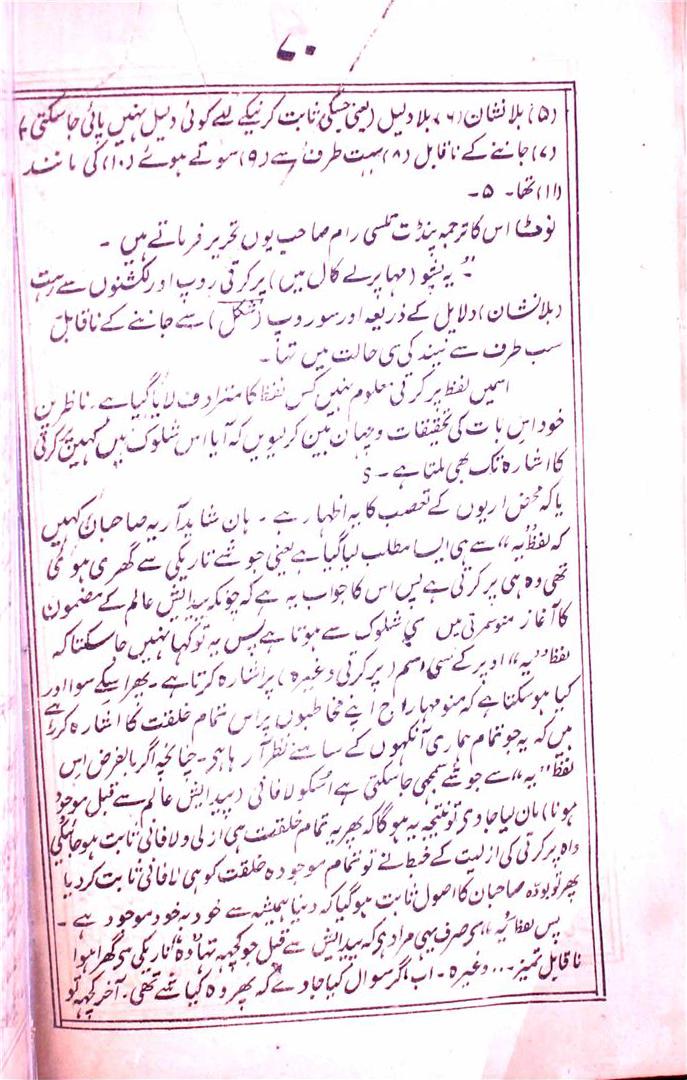 ۷۰
(۵) بلا نشان (۶) بلا دلیل (یعنی جسکی ثابت کرنیکے لیے کوئی دلیل نہیں پائی جا سکتی)
(۷) جاننے کے ناقابل (۸) سب طرف سے (۹) سوتے ہوئے (۱۰) کی مانند
(۱۱) تھا۔ ۵۔
نوٹ اس کا ترجمہ پنڈت تلسی رام صاحب یوں تحریر فرماتے ہیں۔
"یہ بشو (مہا پرلے کال میں) پرکرتی روپ اور لکشنوں سے رہت
(بلا نشان) دلایل کے ذریعہ اور سوروپ (شکل) سے جاننے کے ناقابل
سب طرف سے نیند کی سی حالت میں تھا۔
اسمیں لفظ پرکرتی معلوم نہیں کس لفظ کا مترادف لایا گیا ہے۔ ناظرین
خود اس بات کی تحقیقات و چھان بین کر لیویں کہ آیا اس شلوک میں کہیں پرکرتی
کا اشارہ تک بھی ملتا ہے۔
یا کہ محض اریوں کے تعصب کا یہ اظہار ہے۔ ہاں شاید آریہ صاحبان کہیں
کہ لفظ "یہ" سے ہی ایسا مطلب لیا گیا ہے یعنی جو شے تاریکی سے گھری ہوئی
تھی وہ ہی پرکرتی ہے پس اس کا جواب یہ ہے کہ چونکہ پیدایش عالم کے مضمون
کا آغاز منوسمرتی میں شلوک سے ہوتا ہے پس یہ تو کہا نہیں جا سکتا کہ
لفظ "یہ" اوپر کے کسی اسم (پرکرتی وغیرہ) پر اشارہ کرتا ہے۔ پھر اسکے سوا اور
کیا ہو سکتا ہے کہ منو مہاراج اپنے مخاطبوں پر اس تمام خلقت کا اشارہ کر رہے
ہیں کہ یہ جو تمام ہماری آنکھوں کے سامنے نظر آ رہا ہے۔ چنانچہ اگر بالفرض اس
لفظ "یہ" سے جو شے سمجھی جا سکتی ہے اسکو لافانی (پیدایش عالم سے قبل موجود
ہونا) مان لیا جاوی تو نتیجہ یہ ہوگا کہ پھر یہ تمام خلقت ہی ازلی و لافانی ثابت ہو جائیگی
واہ پرکرتی کی ازلیت کے خبط نے تو تمام موجودہ خلقت کو ہی لافانی ثابت کر دیا
پھر تو بودہ صاحبان کا اصول ثابت ہو گیا کہ دنیا ہمیشہ سے خود بہ خود موجود ہے۔
پس لفظ "یہ" سے صرف یہی مراد ہی کہ پیدایش سے قبل جو کچھہ تہا وہ "تاریکی سی گھرا ہوا
ناقابل تمیز ... وغیرہ۔ اب اگر سوال کیا جاوے کہ پھر وہ کیا شے تھی۔ آخر کچھہ تو